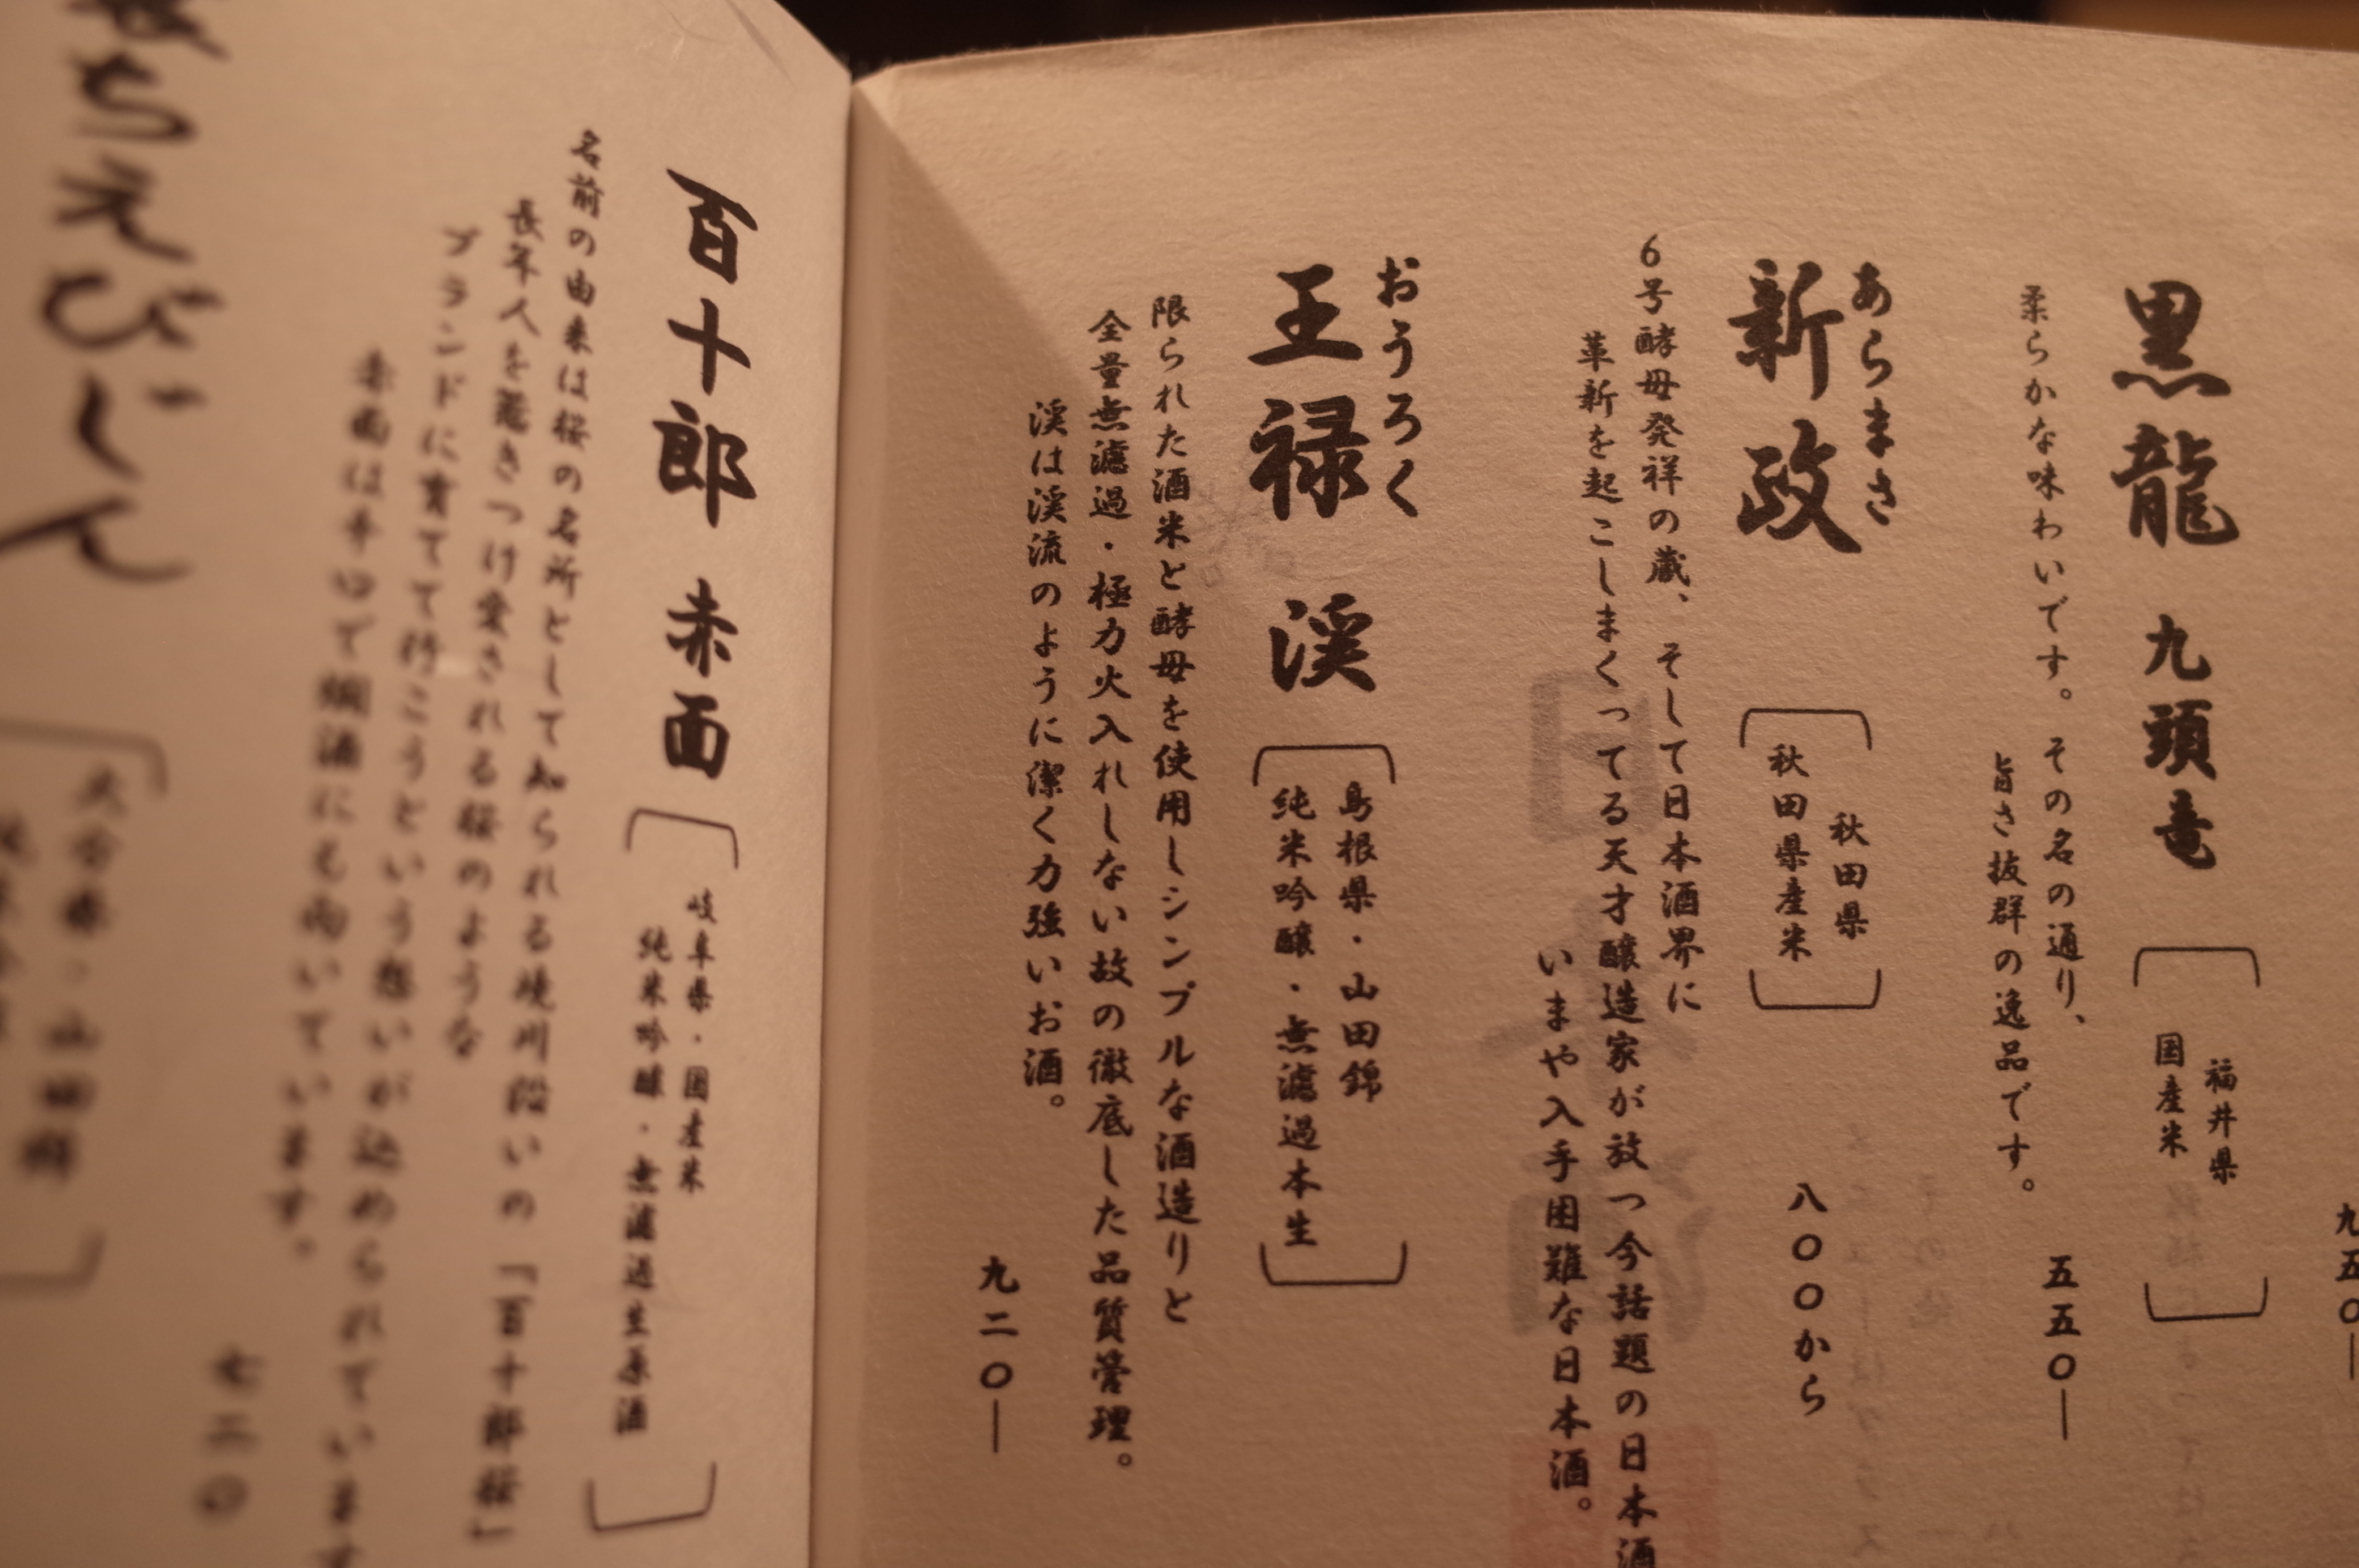 九五〇―
黒龍 九頭竜
福井県
国産米
柔らかな味わいです。その名の通り、
旨さ抜群の逸品です。
五五〇―
あらまさ
新政
秋田県
秋田県産米
6号酵母発祥の蔵、そして日本酒界に
革新を起こしまくってる天才醸造家が放つ今話題の日本酒
いまや入手困難な日本酒。
八〇〇から
おうろく
王禄 渓
島根県・山田錦
純米吟醸・無濾過本生
限られた酒米と酵母を使用しシンプルな酒造りと
全量無濾過・極力火入れしない故の徹底した品質管理。
渓は渓流のように潔く力強いお酒。
九二〇―
百十郎 赤面
岐阜県・国産米
純米吟醸・無濾過生原酒
名前の由来は桜の名所として知られる境川沿いの「百十郎桜」
長年人を惹きつけ愛される桜のような
ブランドに育てて行こうという想いが込められています
赤面は辛口で燗酒にも向いています。
七二〇
ちえびじん